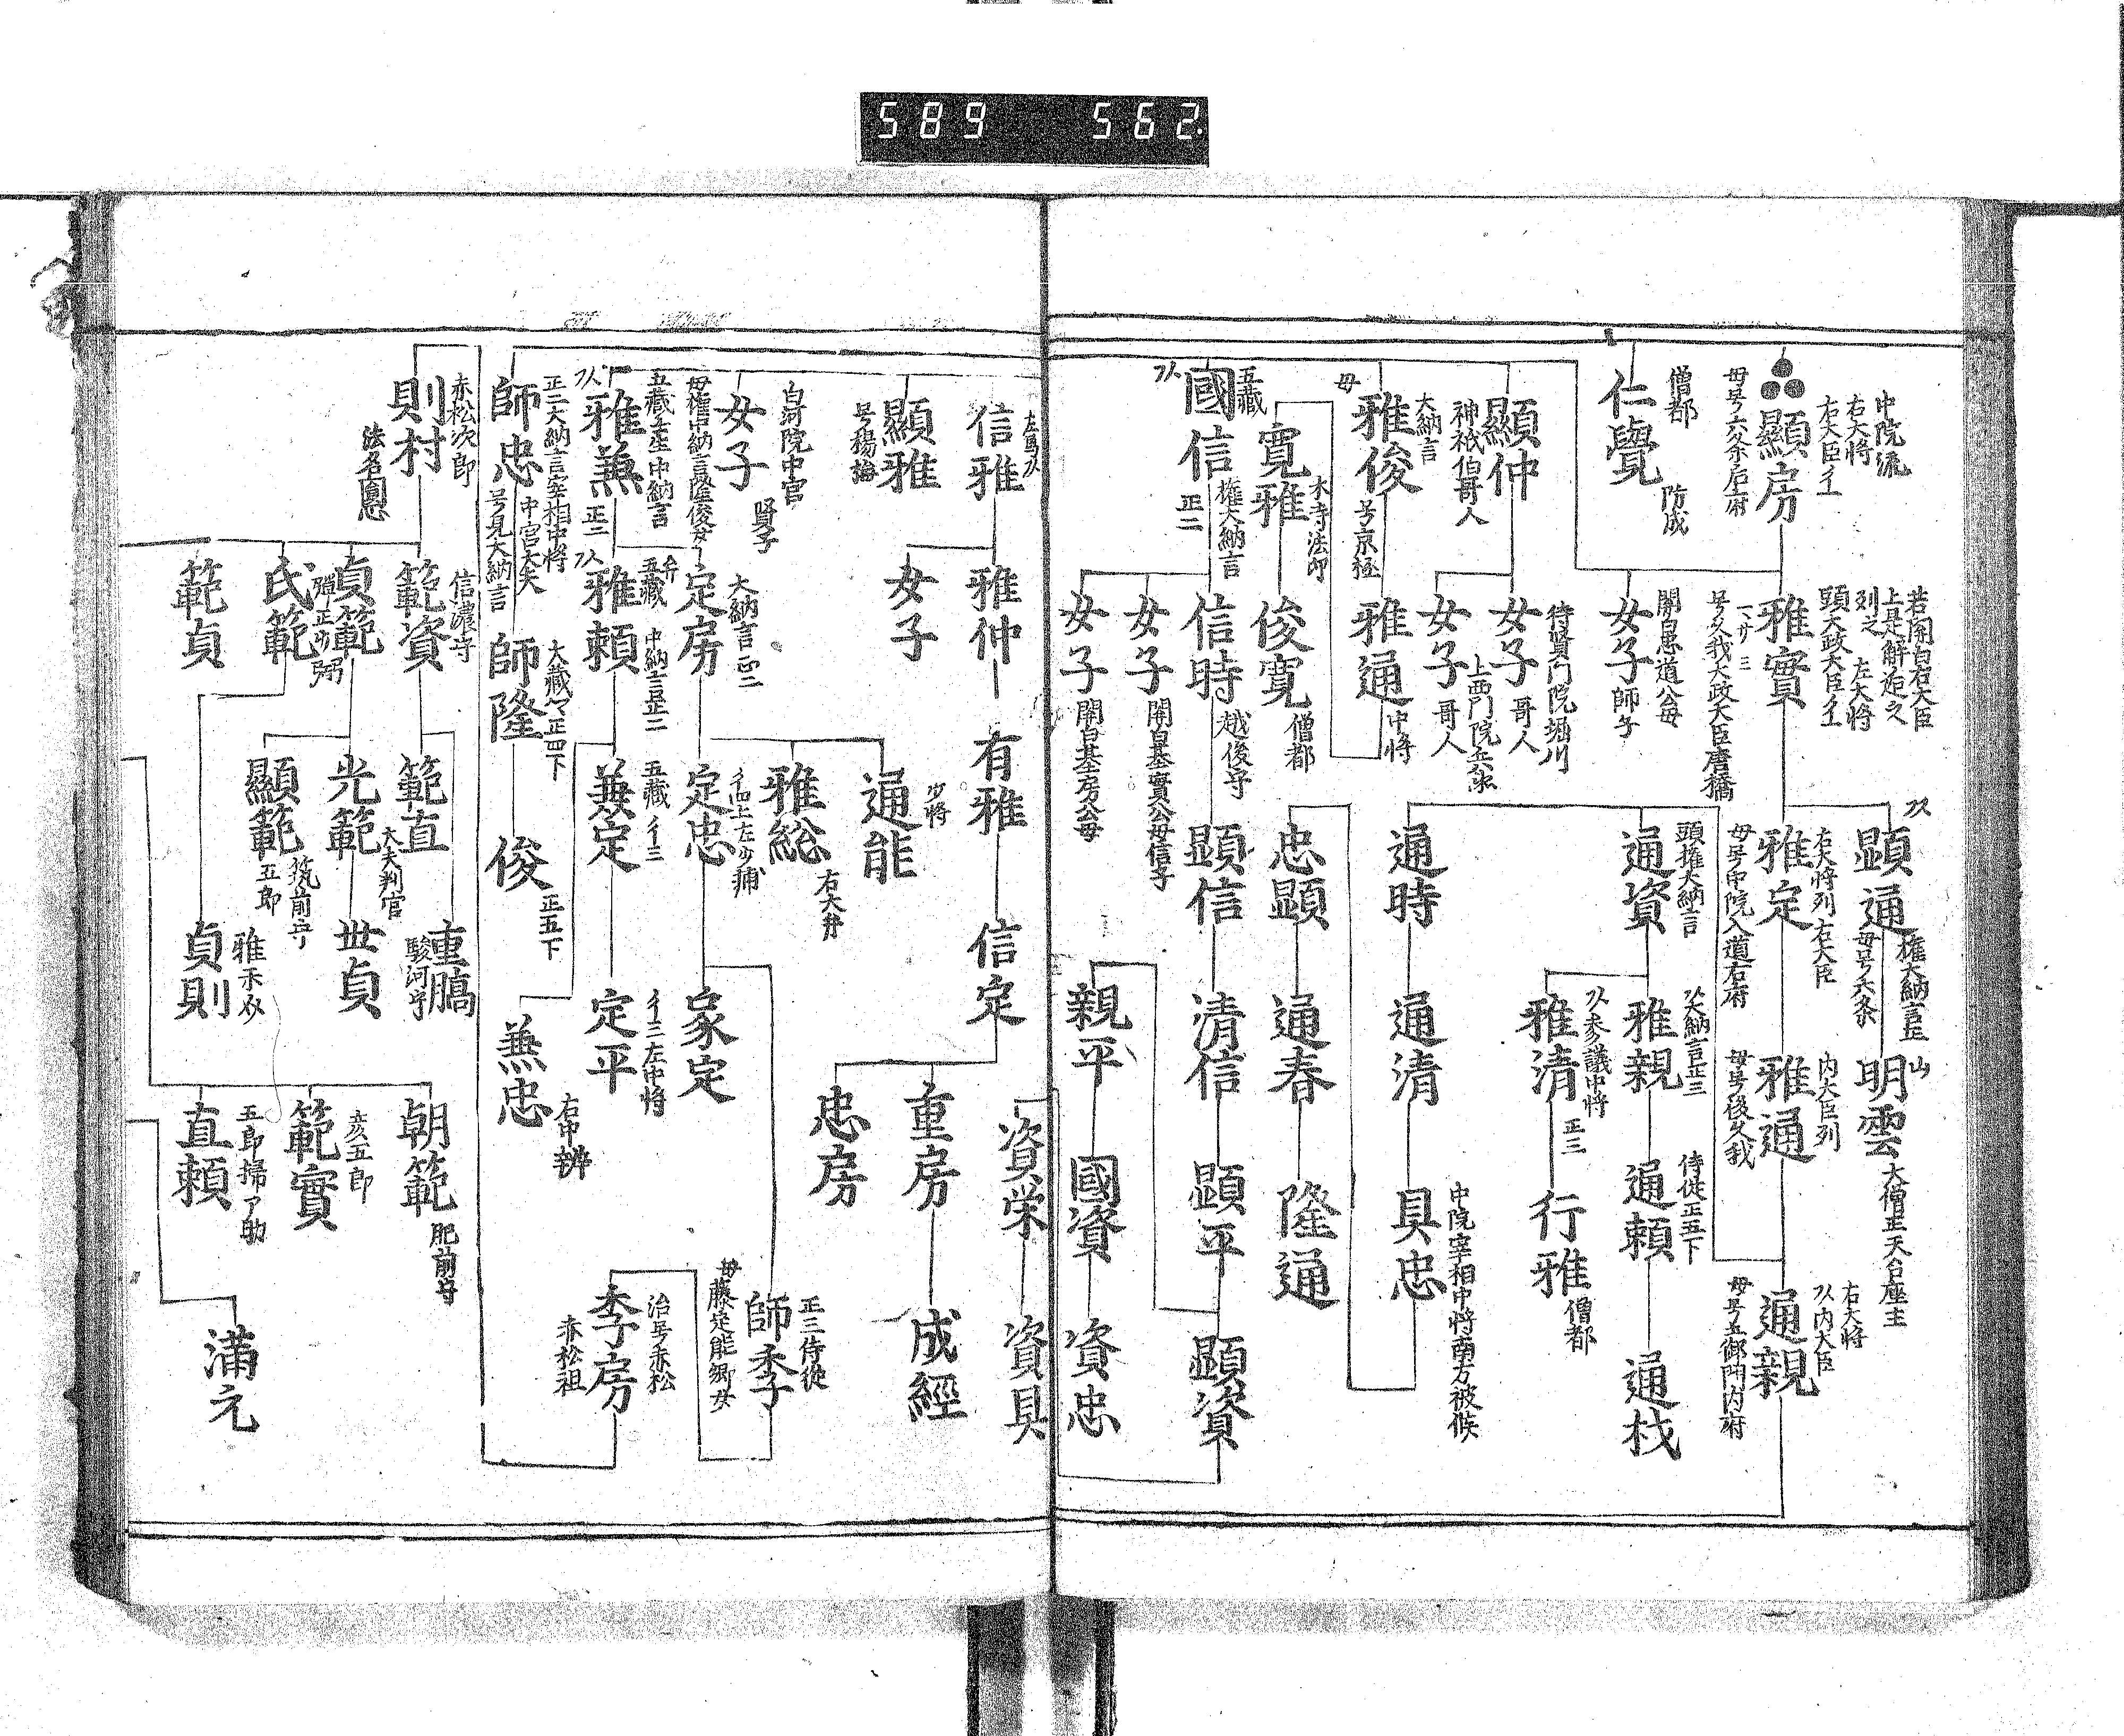 589 562
中院流
右大将
右大臣イ一
顯房
母号六条右府
僧都
仁覺
顯仲
神祇伯哥人
大納言
雅俊
号京極
母
寛雅
木寺法印
五藏
國信
権大納言
正二
列之 左大将
頭太政大臣イ一
雅實
号久我太政大臣唐橋
女子
師子
待賢門院堀川
女子
哥人
上西門院兵衛
女子
哥人
雅通
中将
俊寛
僧都
信時
越後守
女子
関白基實公母信子
女子
関白基房公母
顯通
権大納言正
母号六条
右大将列右大臣
雅定
母号中院入道右府
頭権大納言
通資
通時
忠顯
顕信
明雲
大僧正天台座主
内大臣列
雅通
母号後久我
大納言正三
雅親
参議中将
雅清
正三
通清
通春
清信
親平
右大将
内大臣
通親
侍従正五下
通頼
行雅
僧都
中院宰相中将南方被候
具忠
隆通
顕平
國資
通材
顕資
資忠
信雅
顯雅
号楊梅
白河院中宮
賢子
女子
母権中納言隆俊女
雅兼
正二
正二大納言宰相中将
中宮大夫
師忠
号見大納言
赤松次郎
則村
法名圓心
雅仲
女子
大納言正二
定房
五藏 中納言正二
雅頼
大藏 正四下
師隆
信濃守
範資
貞範
氏範
範貞
有雅
少将
通能
雅総
右大弁
定忠
五藏 イ三
兼定
俊
正五下
範直
光範
大夫判官
顯範
筑前守
五郎
信定
家定
イ三左中将
定平
兼忠
右中辨
駿河守
世貞
貞則
資栄
重房
忠房
朝範
肥前守
彦五郎
範實
直頼
資具
成經
正三侍従
師季
母藤定能卿女
治号赤松
季房
赤松祖
満元